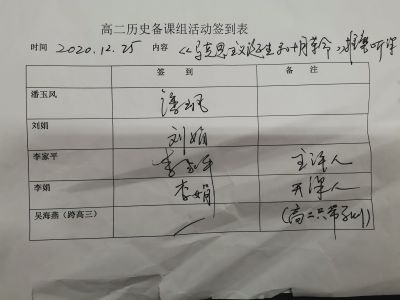 高二历史备课组活动签到表
时间 2020.12.25 内容 《马克思主义诞生和十月革命》推磨听课
签到 备注
潘玉凤 潘玉凤
刘娟 刘娟
李家平 李家平 主评人
李娟 李娟 开课人
吴海燕(跨高三) (高二只带